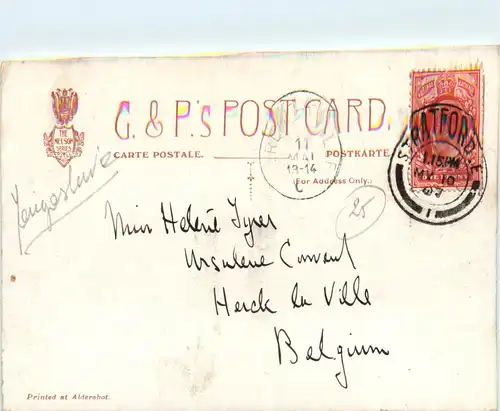 THE
NELSON
SERIES
G. & P.'s POST CARD.
CARTE POSTALE.
POSTKARTE
(For Address Only.)
11
MAI
13-14
STRATFORD. E.
1.15PM
MY 10
1
25
Miss Helene Tyrer
Ursulene Convent
Herck la Ville
Belgium
Printed at Aldershot.